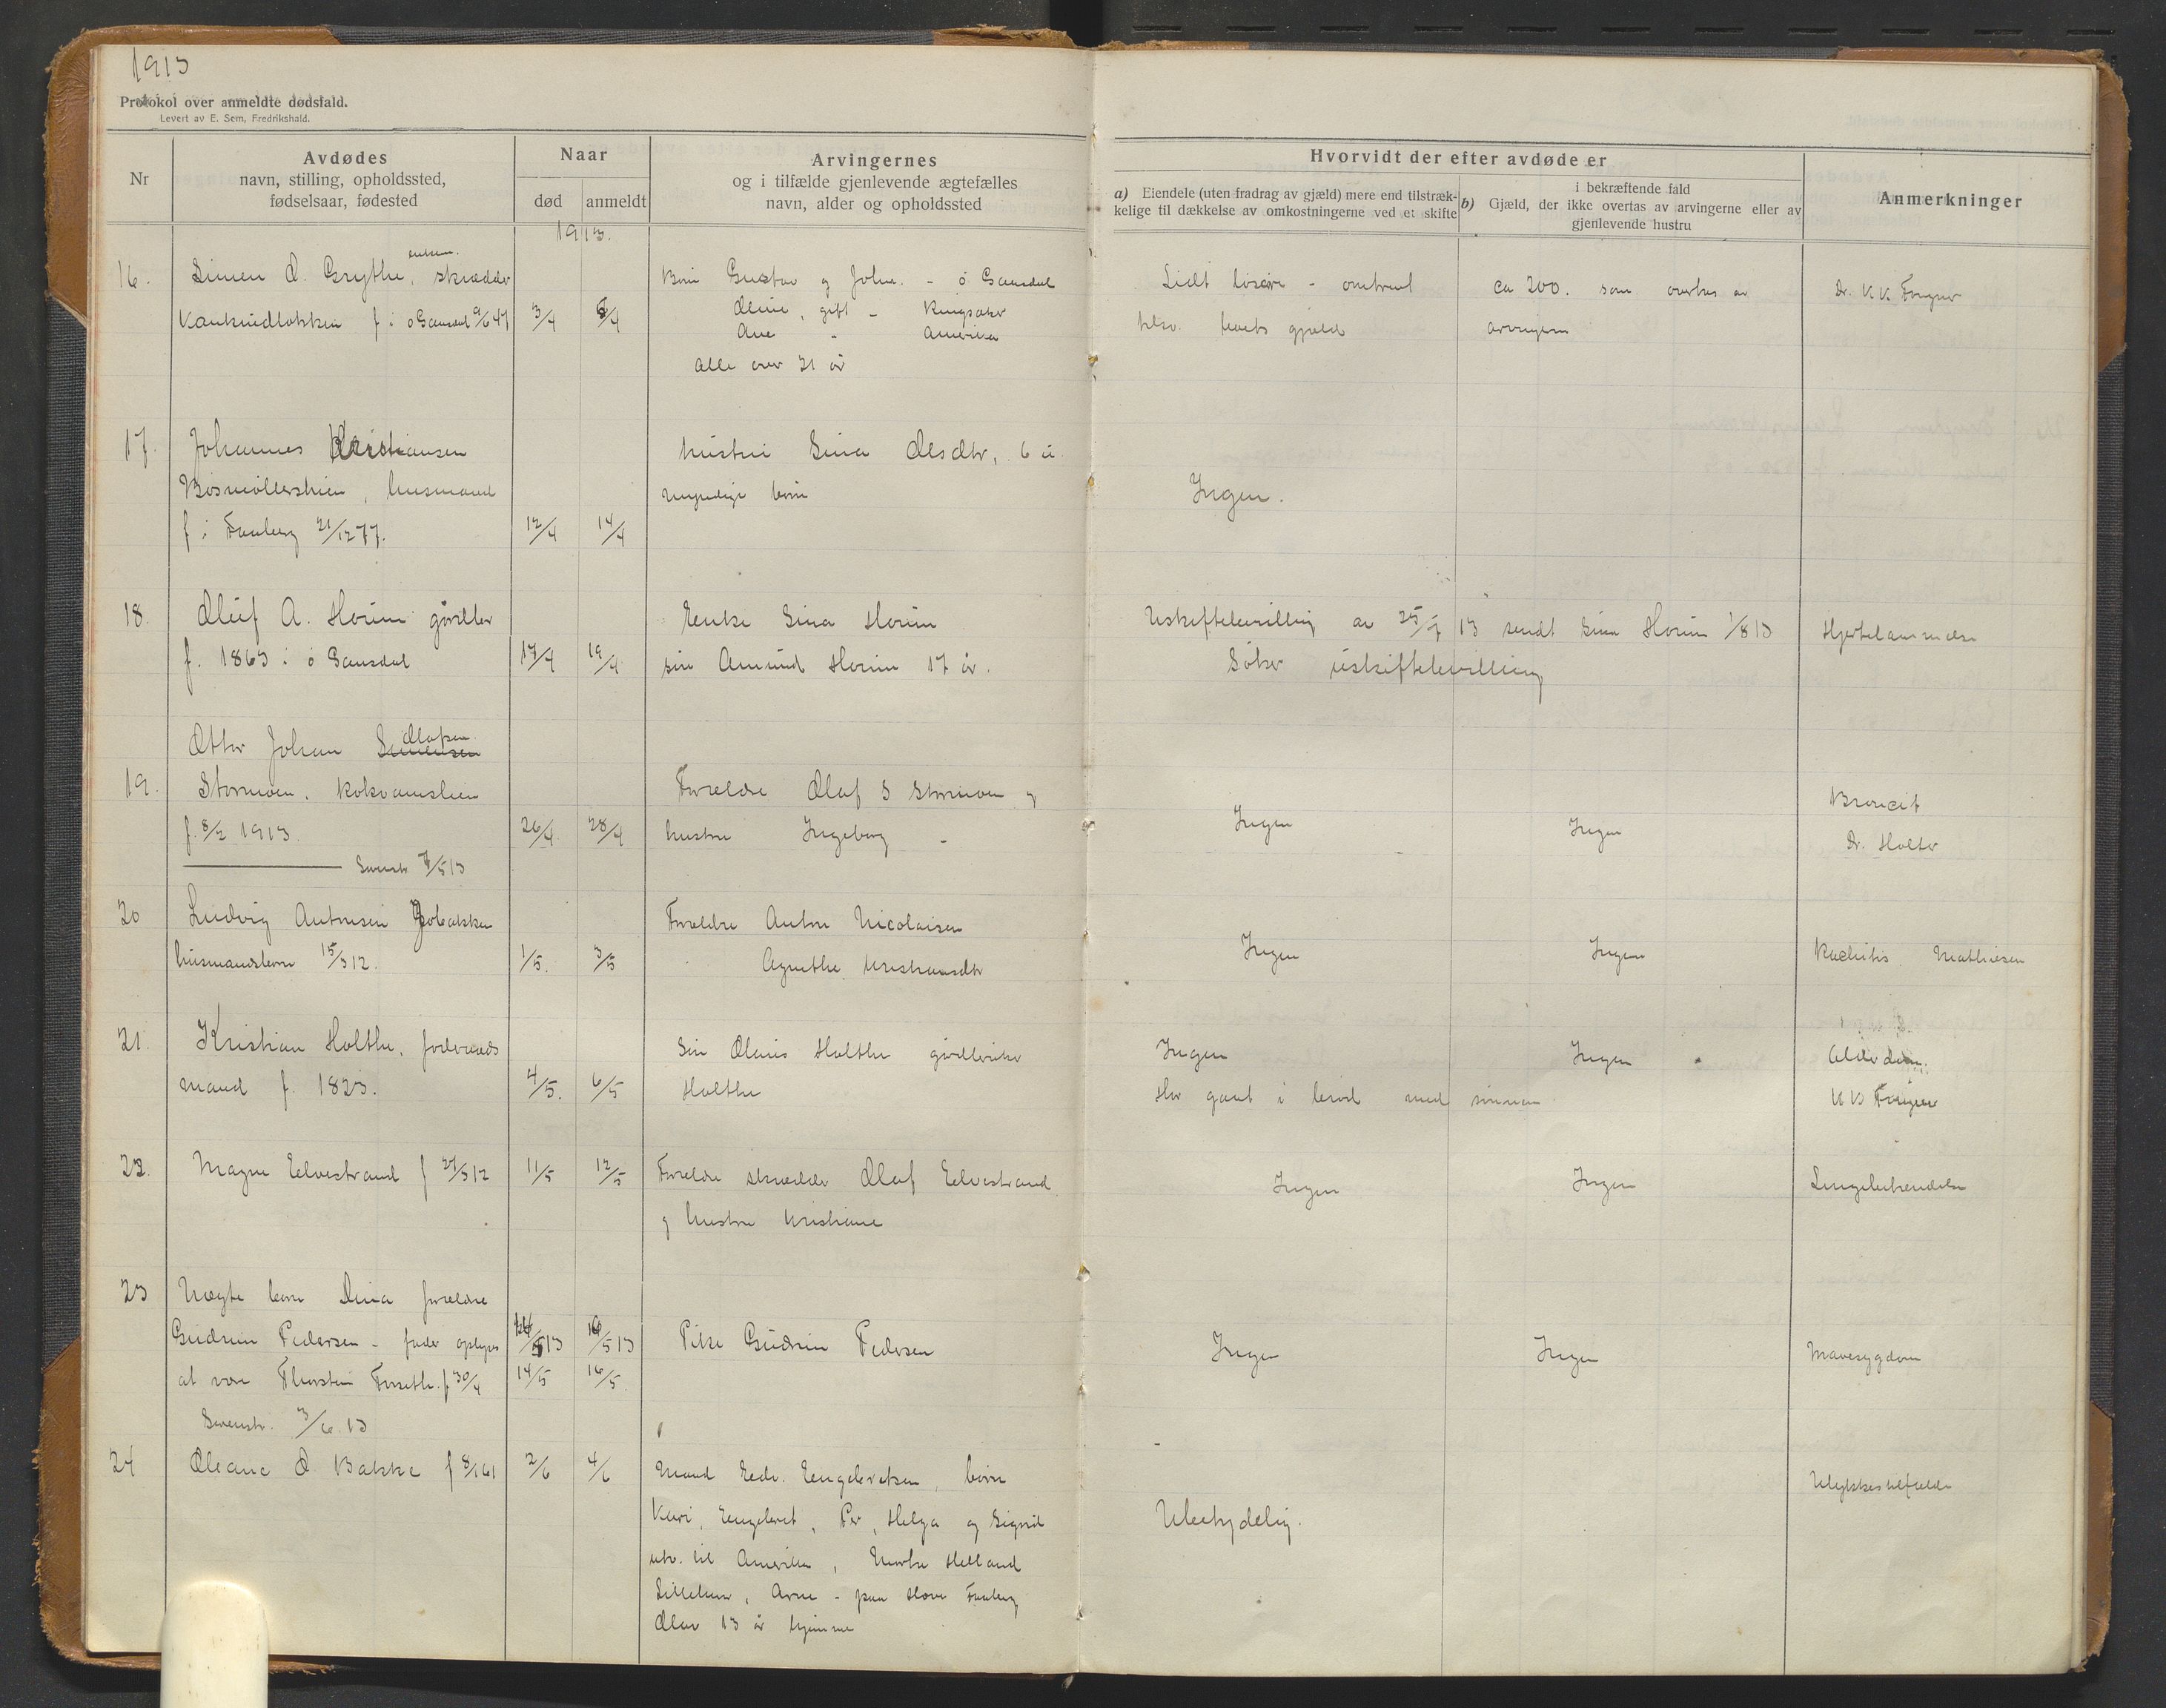 1913
Protokol over anmeldte dødsfald.
Levert av E. Sem, Fredrikshald.
Nr
Avdødes
navn, stilling, opholdssted,
fødselsaar, fødested
Naar
død
anmeldt
Arvingernes
og i tilfælde gjenlevende ægtefælles
navn, alder og opholdssted
Hvorvidt der efter avdøde er
a) Eiendele (uten fradrag av gjæld) mere end tilstræk-
kelige til dækkelse av omkostningerne ved et skifte
i bekræftende fald
b) Gjæld, der ikke overtas av arvingerne eller av
gjenlevende hustru
Anmerkninger
1913.
16. Simen O. Grythe, enkem. skrædder
f i ø Gausdal 9/6 47 3/4 5/4
Børn Gustav og Johs. - ø Gausdal
Oline, gift - Ringsaker
Ane - Amerika
Alle over 21 år
Lidt løsøre - omtrent
tilsv. boets gjæld
ca 200. som overtas av
arvingerne
Dr. K K Frogner
17. Johannes Kristiansen
Bøsmøllershien, husmand
f i Faaberg 21/12 77. 12/4 14/4
hustru Sina Olsdtr, 6 u
myndige børn
Ingen.
18. Oluf A. Horun gårdbr
f. 1863 i ø Gausdal 17/4 19/4
Enke Sina Horun
søn Amund Horun 17 år.
Uskiftebevilling av 25/7 13 sendt Sina Horun 1/8 13
Søker uskiftebevilling
Hjertelammelse
19. Otter Johan Simensen Olafsen
Stormoen. Kokvamslien
f. 8/2 1913. 26/4 28/4
Svenstr 7/5 13
Forældre Olaf S Stormoen og
hustru Ingeborg -
Ingen
Ingen
Broncit
Dr. Holter
20 Ludvig Antonsen
husmandsbarn 15/3 12. 1/5. 3/5
Forældre Anton Nicolaisen
Agnethe Kristiansdtr
Ingen
Ingen
Rachitis Mathiesen
21. Kristian Holthe, foderaads
mand f. 1823. 4/5. 6/5
Søn Olaus Holthe gårdbruker
Holthe
Ingen
Har gaat i brød med sønnen
Ingen
Alderdom.
K K Frogner
22. Magne Elvestrand f 27/3 12 11/5 12/5
Forældre skrædder Olaf Elvestrand
og hustru Kristiane
Ingen
Ingen
Lungebetændelse
23 Uægte barn Dina forældre
Gudrun Pedersen - fader opgives
at være Thorstein Forseth. f 30/4
14/5 13 16/5 13
14/5 16/5
Svenstr. 3/6 13
Pike Gudrun Pedersen
Ingen
Ingen
Mavesygdom
24 Oleane O Bakke f 8/1 61 2/6 4/6
Mand Edv. Engebretsen, børn
Kari, Engebret, Per, Helga og Sigrid
utv. til Amerika, Marte Helland
Lillehmr, Arne - paa Hove Faaberg
Olav 13 år hjemme
Ubetydelig.
Ulykkestilfælde